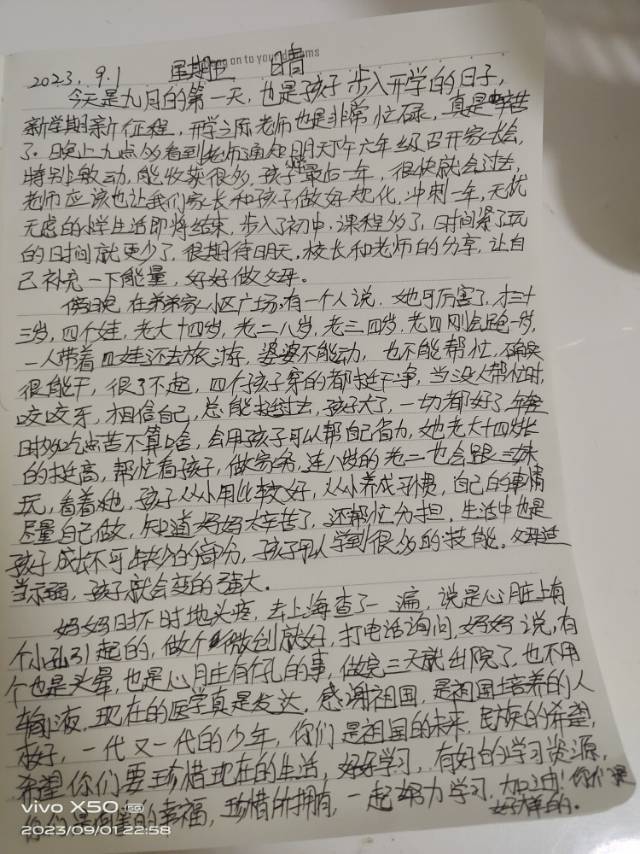 on to your dreams
2023.9.1 星期五 晴
今天是九月的第一天,也是孩子步入开学的日子,
新学期新征程,开学之际老师也是非常忙碌,真是辛苦
了。晚上九点多看到老师通知明天下午六年级召开家长会,
特别激动,能收获很多,孩子最后一年,很快就会过去,
老师应该也让我们家长和孩子做好变化,冲刺一年,无忧
无虑的小学生活即将结束,步入了初中,课程多了,时间紧了玩
的时间就更少了,很期待明天,校长和老师的分享,让自
己补充一下能量,好好做父母。
傍晚在弟弟家小区广场,有一个人说,她可厉害了,才三十
三岁,四个娃,老大十四岁,老二八岁,老三四岁,老四刚会跑一岁,
一人带着四娃还去旅游,婆婆不能动,也不能帮忙,确实
很能干,很了不起,四个孩子穿的都挺干净,当没人帮忙时,
咬咬牙,相信自己,总能挺过去,孩子大了,一切都好了,年轻
时多吃点苦不算啥,会用孩子可以帮自己省力,她老大十四岁长
的挺高,帮忙看孩子,做家务,连八岁的老二也会跟三妹
玩,看着她,孩子从小用比较好,从小养成习惯,自己的事情
尽量自己做,知道妈妈太辛苦了,还帮忙分担,生活中也是
孩子成长不可缺少的部分,孩子可以学到很多的技能。父母适
当示弱,孩子就会变的强大。
妈妈时不时地头疼,去上海查了一遍,说是心脏上有
个小孔引起的,做个微创就好,打电话询问,妈妈说,有
个也是头晕,也是心脏有个孔的事,做完三天就出院了,也不用
输液,现在的医学真是发达,感谢祖国,是祖国培养的人
才,一代又一代的少年,你们是祖国的未来,民族的希望,
希望你们要珍惜现在的生活,好好学习,有好的学习资源,
你们是的幸福,珍惜所拥有,一起努力学习,加油!你们是
好样的。
vivo X50 5G
2023/09/01 22:58